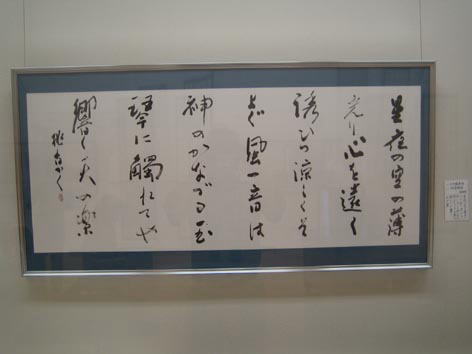 星座の空の薄
光り心を遠く
誘ひつ涼しくそ
よぐ風一音は
神のかなづる玉
琴に觸れてや
響く天の楽
かく